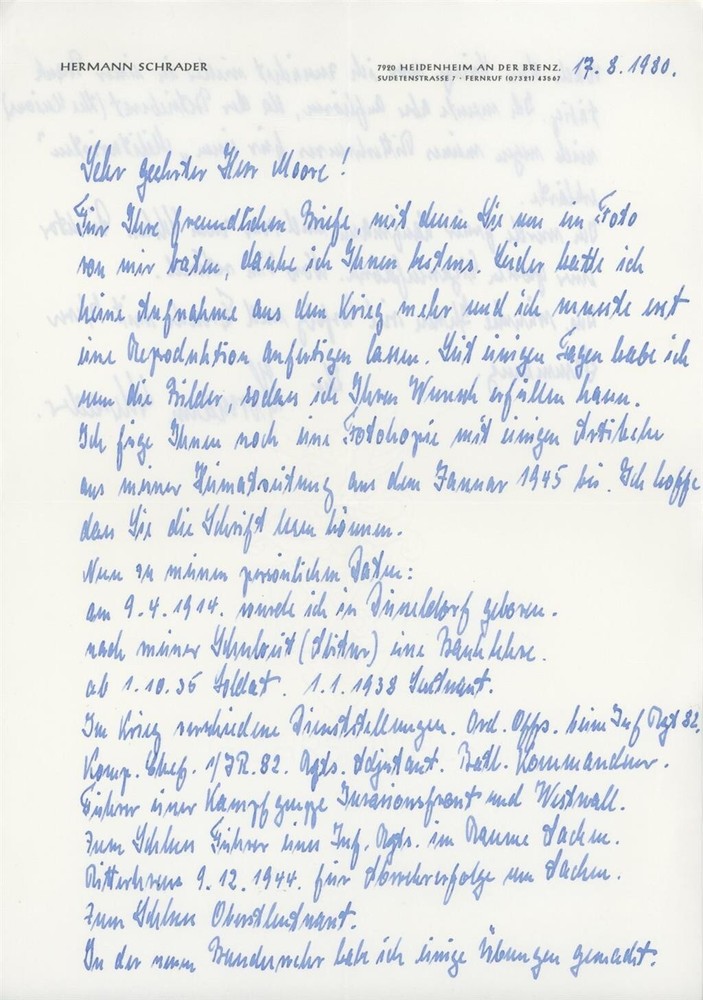 HERMANN SCHRADER
7920 HEIDENHEIM AN DER BRENZ, 17. 8. 1980.
SUDETENSTRASSE 7 · FERNRUF (07321) 43567
Sehr geehrter Herr Moore!
Für Ihre freundlichen Briefe, mit denen Sie um ein Foto
von mir baten, danke ich Ihnen bestens. Leider hatte ich
keine Aufnahme aus dem Krieg mehr und ich musste erst
eine Reproduktion anfertigen lassen. Seit einigen Tagen habe ich
nun die Bilder, sodass ich Ihren Wunsch erfüllen kann.
Ich füge Ihnen noch eine Fotokopie mit einigen Artikeln
aus meiner Heimatzeitung aus dem Januar 1945 bei. Ich hoffe
dass Sie die Schrift lesen können.
Nun zu meinen persönlichen Daten:
am 9.4.1914. wurde ich in Düsseldorf geboren.
nach meiner Schulzeit (Abitur) eine Banklehre.
ab 1.10.35 Soldat. 1.1.1938 Leutnant.
Im Krieg verschiedene Dienststellungen. Ord. Offz. beim Inf Rgt 82.
Komp. Chef. 1/JR. 82. Rgts. Adjutant. Batl. Kommandeur.
Führer einer Kampfgruppe Invasionsfront und Westwall.
Zum Schluss Führer eines Inf. Rgts. im Raume Aachen.
Ritterkreuz 9.12.1944. für Abwehrerfolge um Aachen.
Zum Schluss Oberstleutnant.
In der neuen Bundeswehr habe ich einige Übungen gemacht.